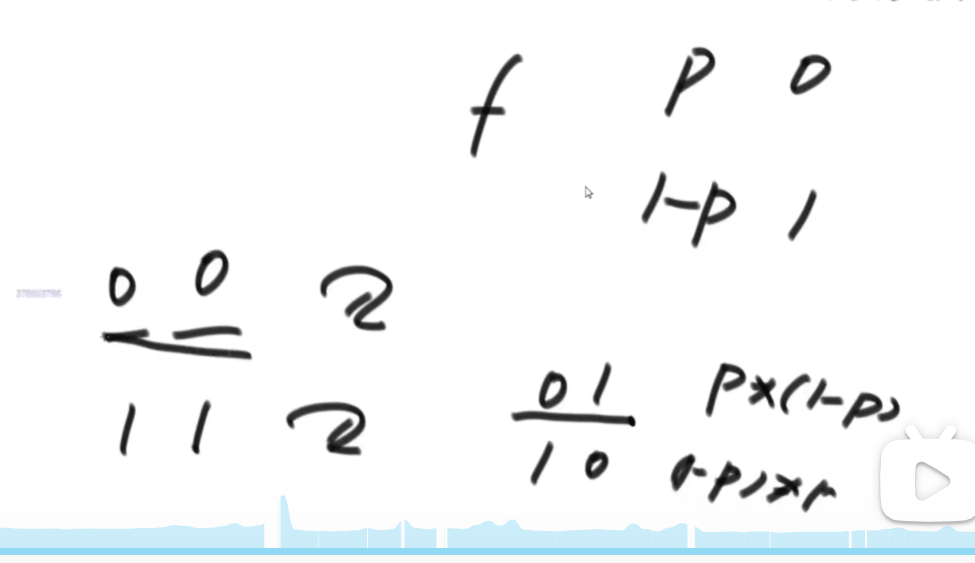 f p 0
1-p 1
0 0
1 1
0 1 p×(1-p)
1 0 (1-p)×p